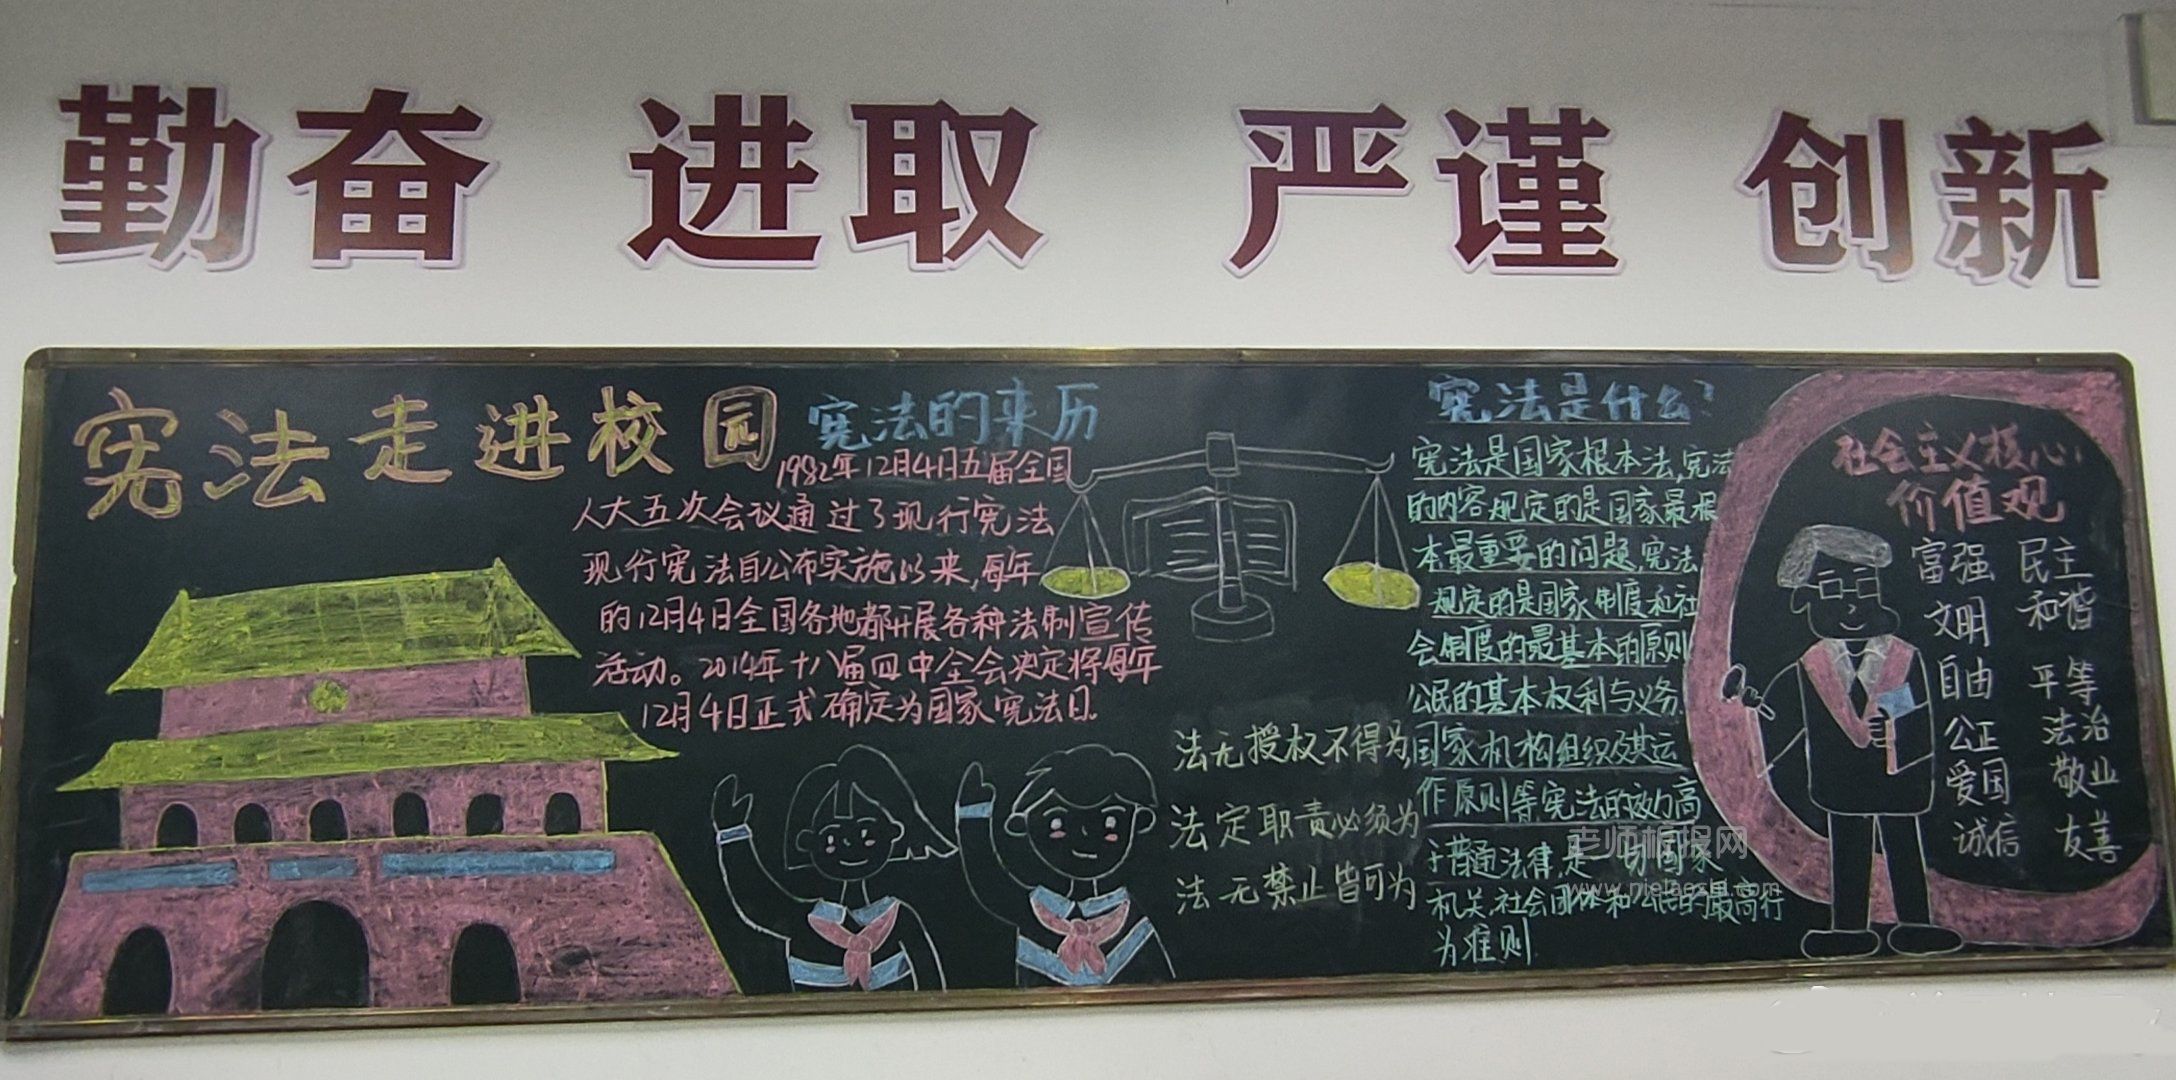 勤奋 进取 严谨 创新
宪法走进校园
宪法的来历
1982年12月4日五届全国
人大五次会议通过了现行宪法
现行宪法自公布实施以来,每年
的12月4日全国各地都开展各种法制宣传
活动。2014年十八届四中全会决定将每年
12月4日正式确定为国家宪法日.
法无授权不得为,
法定职责必须为
法无禁止皆可为
宪法是什么?
宪法是国家根本法,宪法
的内容规定的是国家最根
本最重要的问题,宪法
规定的是国家制度和社
会制度的最基本的原则
公民的基本权利与义务.
国家机构组织及其运
作原则等宪法的效力高
于普通法律,是一切国家
机关.社会团体和公民的最高行
为准则.
社会主义核心
价值观
富强 民主
文明 和谐
自由 平等
公正 法治
爱国 敬业
诚信 友善
老师板报网